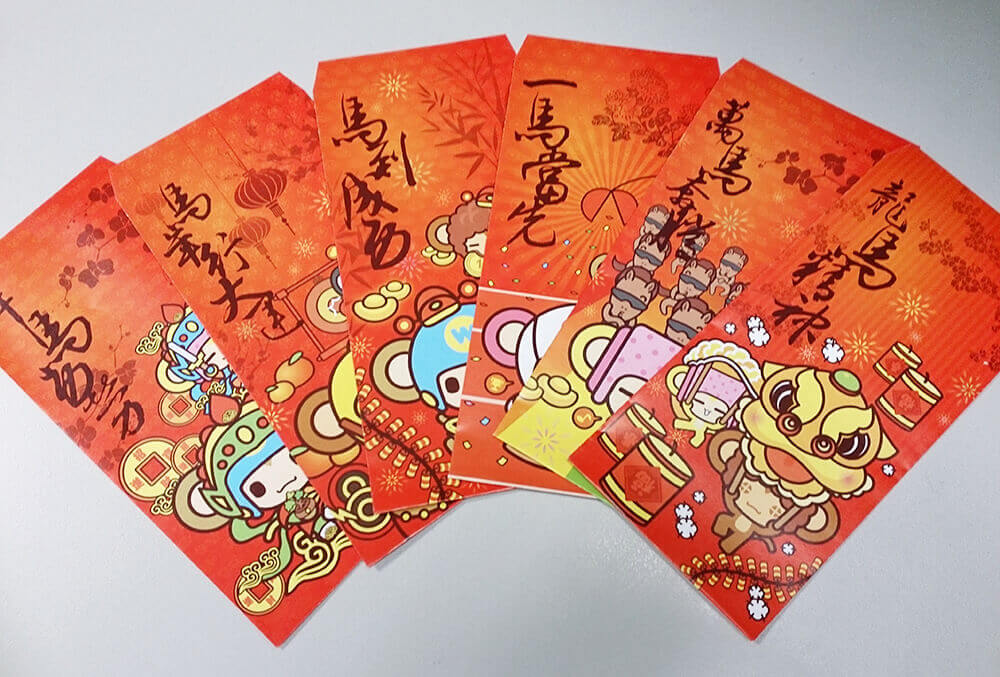 馬
馬年行大運
馬到成功
一馬當先
萬馬奔騰
龍馬精神
W